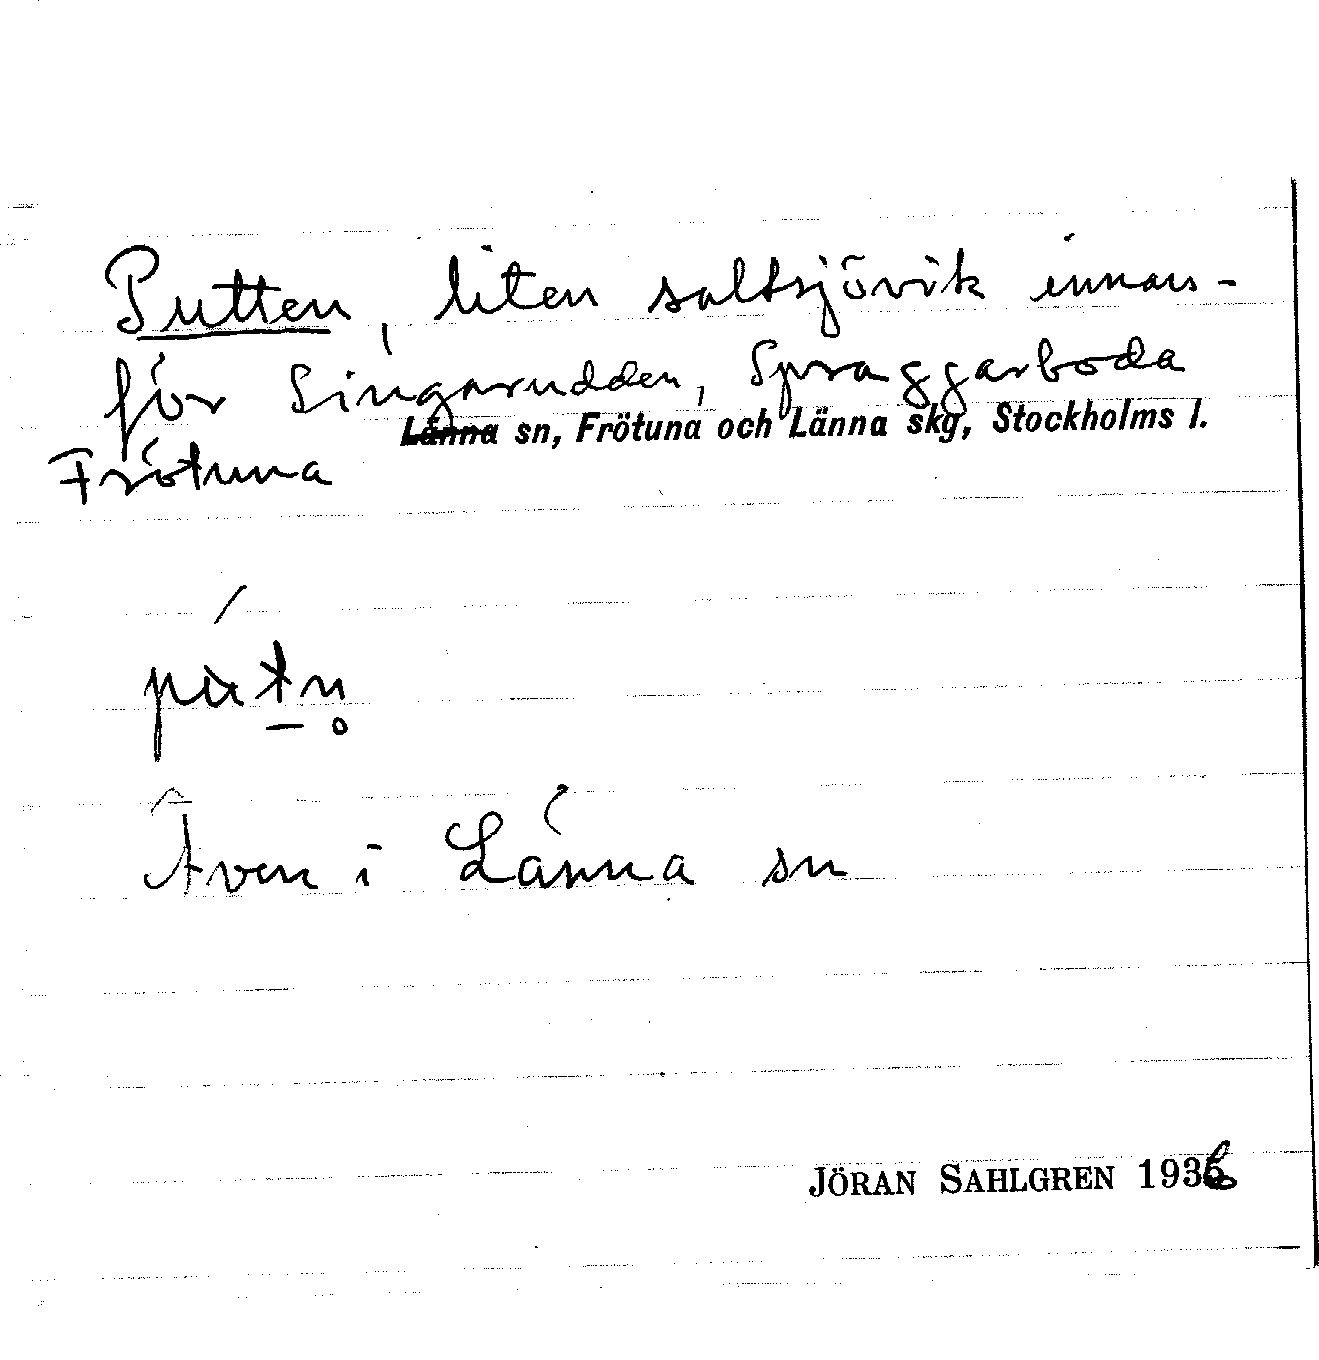 Putten, liten saltsjövik innan-
för Lingarudden, Spraggarboda
Länna sn, Frötuna och Länna skg, Stockholms l.
Frötuna
Även i Länna sn
JÖRAN SAHLGREN 1936